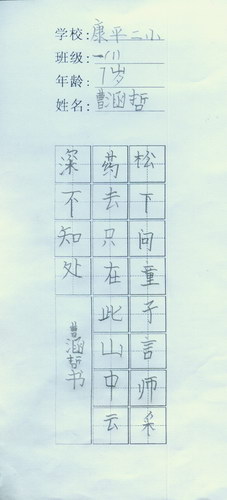 学校:康平二小
班级:一(1)
年龄:7岁
姓名:曹涵哲
松下问童子言师采
药去只在此山中云
深不知处
曹涵哲书